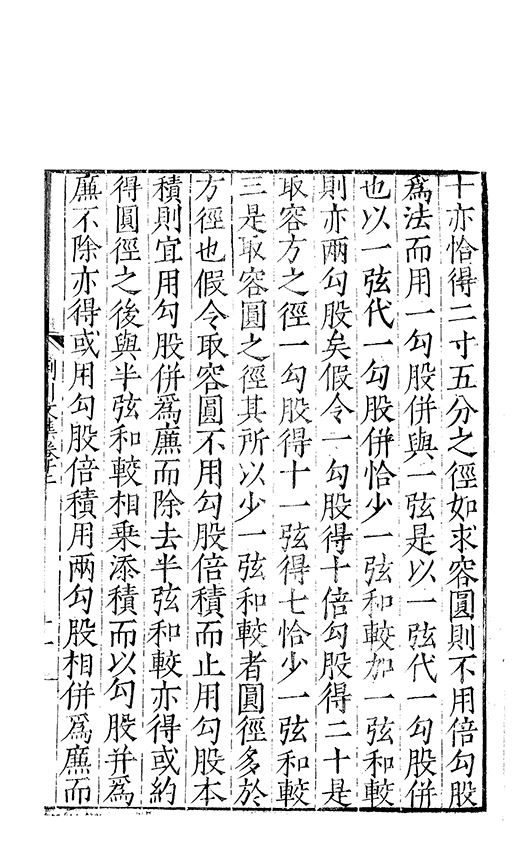 十亦恰得二寸五分之徑如求容圓則不用倍勾股
爲法而用一勾股併與一弦是以一弦代一勾股併
也以一弦代一勾股併恰少一弦和較加一弦和較
則亦兩勾股矣假令一勾股得十倍勾股得二十是
取容方之徑一勾股得十一弦得七恰少一弦和較
三是取容圓之徑其所以少一弦和較者圓徑多於
方徑也假令取容圓不用勾股倍積而止用勾股本
積則宜用勾股併爲廉而除去半弦和較亦得或約
得圓徑之後與半弦和較相乗添積而以勾股并爲
廉不除亦得或用勾股倍積用兩勾股相併爲廉而
荆川文集卷十
十一